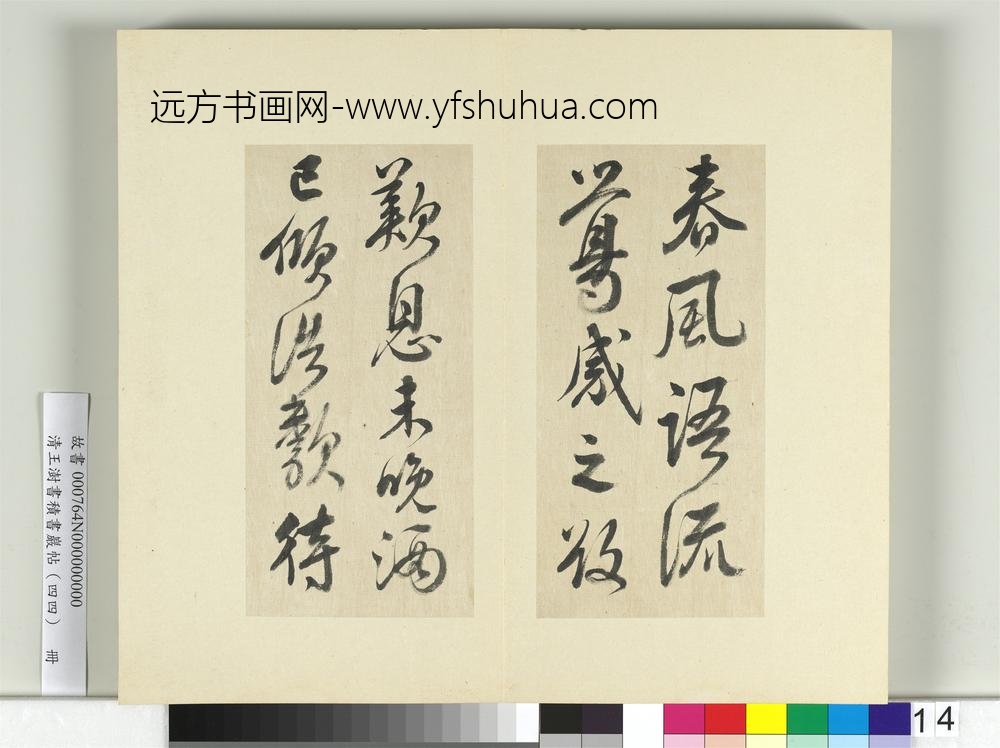 远方书画网-www.yfshuhua.com
春風語流
尊感之故
歎息未晚酒
已傾浩歌待
故書 000764N000000000
清王澍書積書巖帖（四四） 冊
14